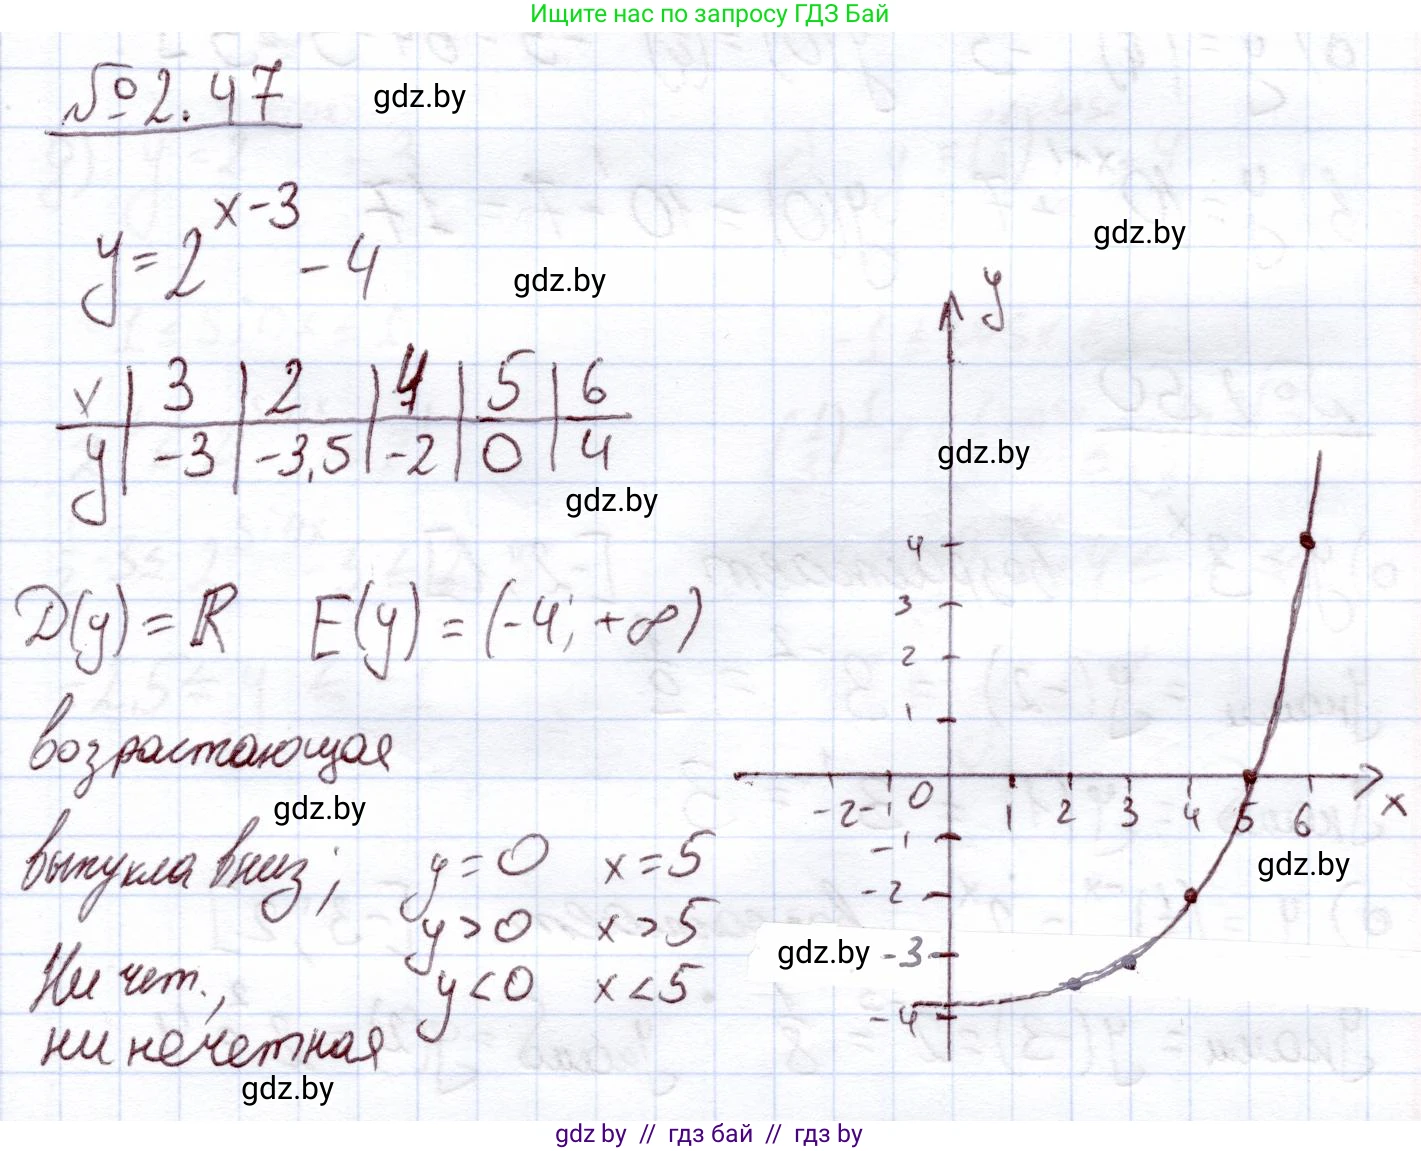 Ищите нас по запросу ГДЗ Бай
№ 2.47
gdz.by
y = 2^{x-3} - 4
gdz.by
gdz.by
x | 3 | 2 | 4 | 5 | 6
y | -3 | -3,5 | -2 | 0 | 4
gdz.by
gdz.by
D(y) = ℝ E(y) = (-4; +∞)
возрастающая
gdz.by
выпукла вниз; y = 0 x = 5
y > 0 x > 5
Ни чет., y < 0 x < 5
ни нечетная
gdz.by
y
4
3
2
1
-2 -1 0 1 2 3 4 5 6 x
-1
gdz.by
-2
gdz.by -3
-4
gdz.by // гдз бай // гдз by